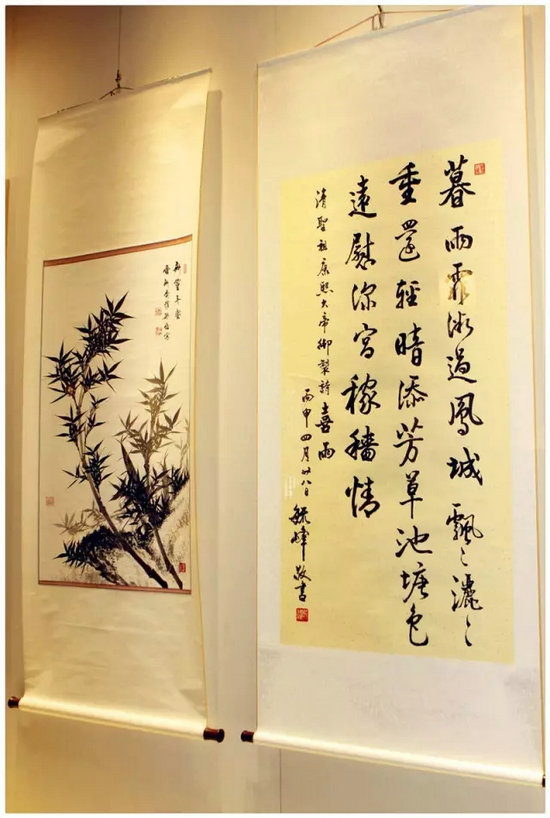 暮雨霏微過鳳城飄〻灑〻
重還輕暗添芳草池塘色
遠慰深宮稼穡情
清聖祖康熙大帝御製詩喜雨
丙申四月廿八日毓 敬書